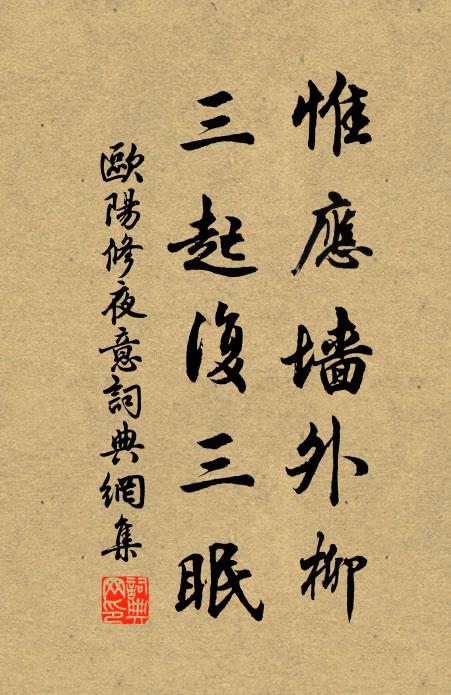 惟應墻外柳
三起復三眠
歐陽修夜意詞典網集
詞典
网印